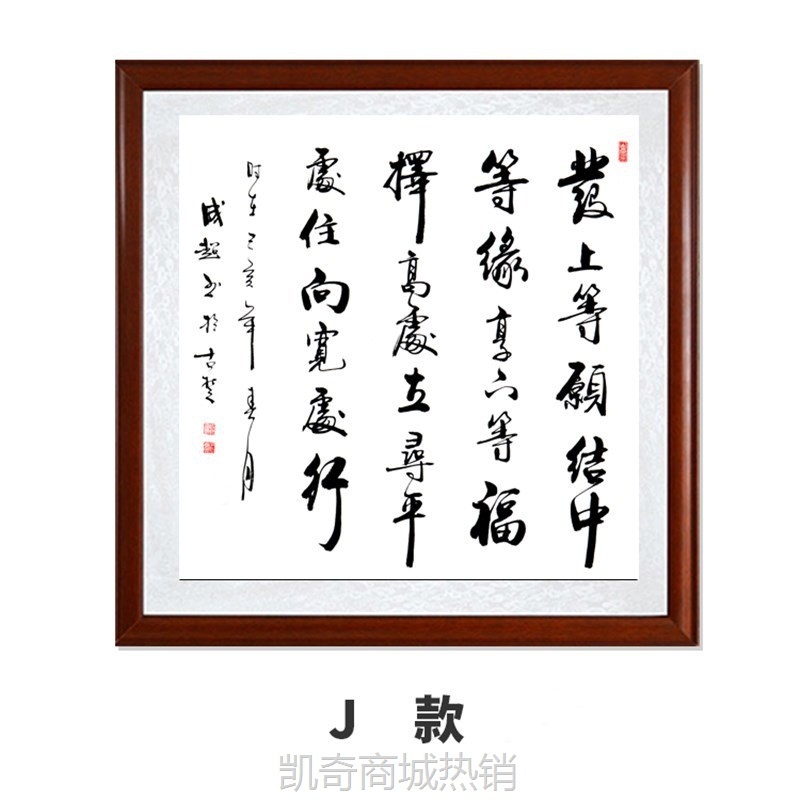 發上等願結中
等緣享下等福
擇高處立尋平
處住向寬處行
時在己亥年春月
成超书於古楚
J 款
凯奇商城热销